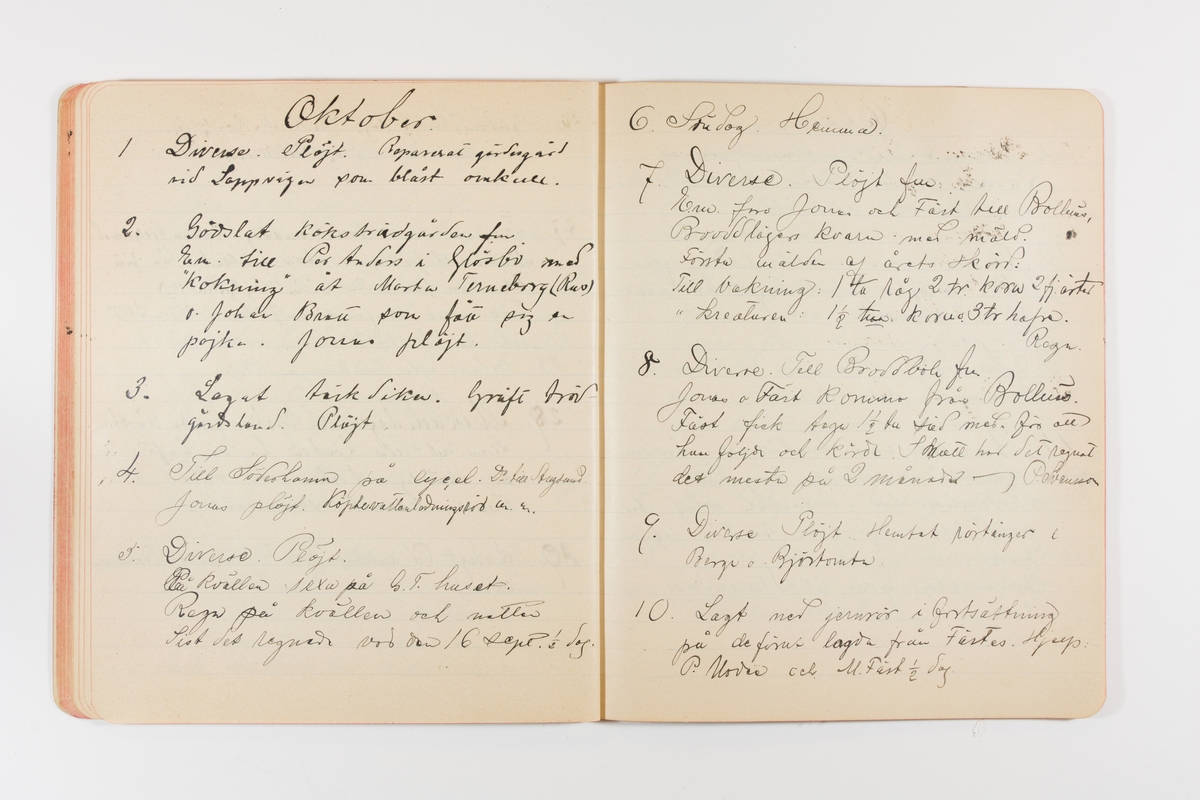 Oktober.
1 Diverse. Plöjt. Reparerat gärdesgård
vid Lappvägen som blåst omkull.
2. Gödslat köksträdgården fm.
Em. till Per Anders i Glösbo med
"kokning" åt Marta Terneborg (Rus)
o. Johan Bratt som fått sig en
pojke. Jonas plöjt.
3. Lagat täckdiken. Gräft träd-
gårdsland. Plöjt
4. Till Söderhamn på cycel. D:o till Stugsund
Jonas plöjt. Köpte vattenledningsrör m. m.
5. Diverse. Plöjt.
På kvällen sexa på G.T. huset.
Regn på kvällen och natten
Sist det regnade var den 16 sept. ½ dag.
6. Söndag. Hemma.
7. Diverse. Plöjt fm.
Em. foro Jonas och Fäst till Bollnäs,
Broddlägers kvarn med mäld.
Första mälden af årets skörd:
Till bakning: 1 ta råg 2 tr korn 2 fjärdet
" kreaturen: 1½ tun. korn o. 3 tr hafre.
Regn.
8. Diverse. Till Broddböle fm.
Jonas o Fäst kommo från Bollnäs.
Fäst fick taga 1½ ta säd med för att
han följde och körde. I natt har det regnat
det mesta på 2 månader
9. Diverse Plöjt. Hemtat rörtänger i
Berge o. Björtomta.
10. Lagt ned jernrör i fortsättning
på de förut lagda från Fästes. Hjelp:
P. Moder och M. Fäst ½ dag.